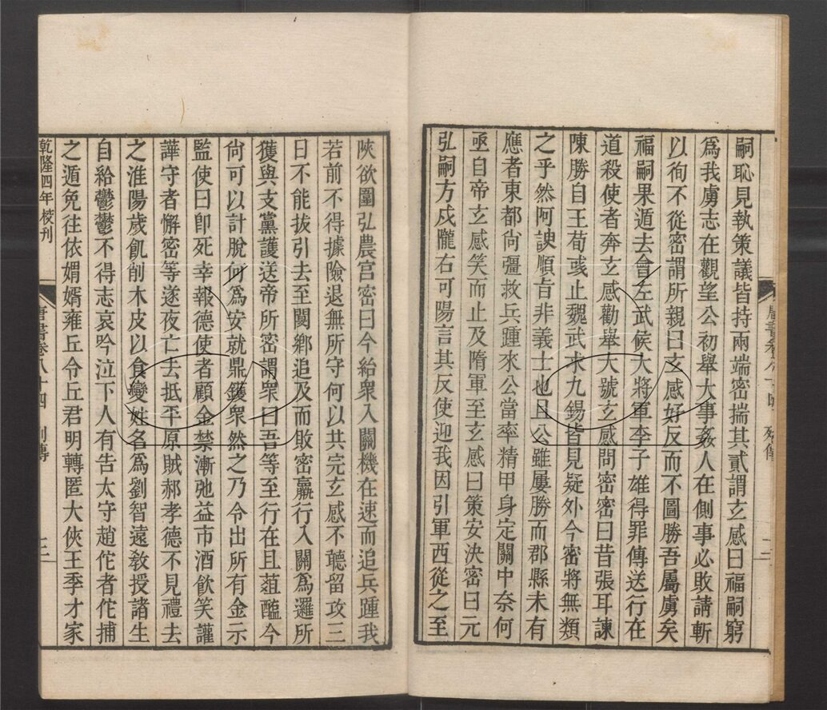 嗣恥見執策議皆持兩端密揣其貳謂玄感曰福嗣窮
爲我虜志在觀望公初舉大事姦人在側事必敗請斬
以徇不從密謂所親曰玄感好反而不圖勝吾屬虜矣
福嗣果遁去會左武候大將軍李子雄得罪傳送行在
道殺使者奔玄感勸舉大號玄感問密密曰昔張耳諫
陳勝自王荀彧止魏武求九錫皆見疑外今密將無類
之乎然阿諛順旨非義士也且公雖屢勝而郡縣未有
應者東都尙彊救兵踵來公當率精甲身定關中奈何
亟自帝玄感笑而止及隋軍至玄感曰策安決密曰元
弘嗣方戍隴右可陽言其反使迎我因引軍西從之至
陝欲圍弘農宮密曰今給衆入關機在速而追兵踵我
若前不得據險退無所守何以共完玄感不聽留攻三
日不能拔引去至閿鄕追及而敗密羸行入關爲邏所
獲與支黨護送帝所密謂衆曰吾等至行在且葅醢今
尙可以計脫何爲安就鼎鑊衆然之乃令出所有金示
監使曰卽死幸報德使者顧金禁漸弛益市酒飮笑讙
譁守者懈密等遂夜亡去抵平原賊郝孝德不見禮去
之淮陽歲飢削木皮以食變姓名爲劉智遠敎授諸生
自給鬱鬱不得志哀吟泣下人有告太守趙佗者佗捕
之遁免往依婿雍丘令丘君明轉匿大俠王季才家
乾隆四年校刊
唐書卷八十四 列傳